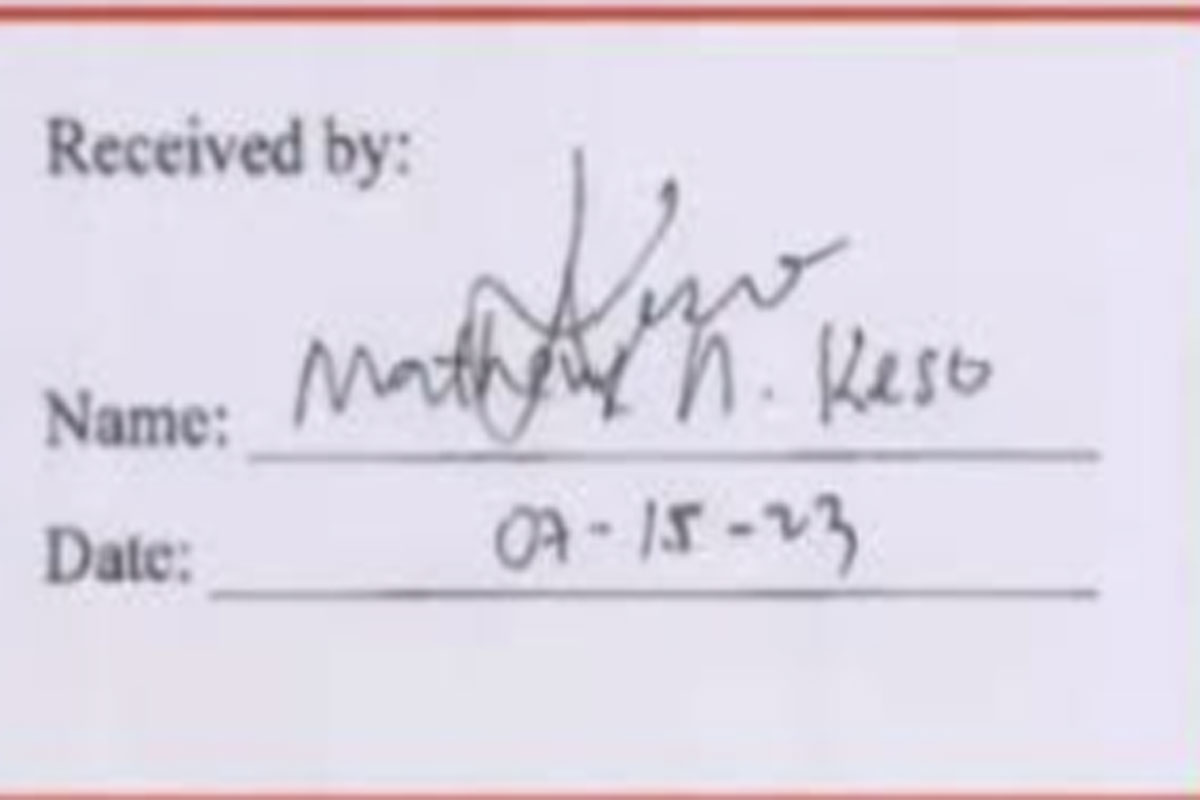 Received by:
Name: Mathew N. Keso
Date: 07-15-23